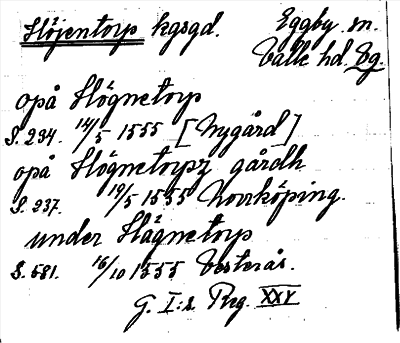 Höjentorp kgsgd. Eggby sn.
Valle hd. Vg.
opå Högnetorp
S. 234. 14/5 1555 [Nygård]
opå Högnetorpz gårdh
S. 237. 19/5 1555 Norrköping.
under Hägnetorp
S. 581. 16/10 1555 Vesterås.
G. I:s Reg. XXV